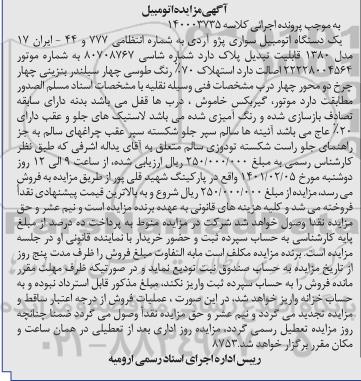 آگهی مزایده اتومبیل
به موجب پرونده اجرائی کلاسه ۱۴۰۰۰۳۷۳۵
یک دستگاه اتومبیل سواری پژو آردی به شماره انتظامی ۷۷۷ و ۴۴ - ایران ۱۷
مدل ۱۳۸۰ قابلیت تبدیل پلاک دارد شماره شاسی ۸۰۷۰۸۷۶۷ به شماره موتور
۲۲۲۲۸۰۰۴۵۶۴ اصالت دارد استهلاک ۷۰٪ رنگ طوسی چهار سیلندر بنزینی چهار
چرخ دو محور چهار درب مشخصات فنی وسیله نقلیه با مشخصات اسناد مسلم الصدور
مطابقت دارد موتور، گیربکس خاموش ، درب ها قفل می باشد بدنه دارای سابقه
تصادف بازسازی شده و رنگ آمیزی شده می باشد لاستیک های جلو و عقب دارای
۲۰٪ عاج می باشد آئینه ها سالم سپر جلو شکسته سپر عقب چراغهای سالم به جز
راهنمای جلو راست شکسته تودوزی سالم متعلق به آقای یداله اشرفی که طبق نظر
کارشناس رسمی به مبلغ ۲۵۰/۰۰۰/۰۰۰ ریال ارزیابی شده، از ساعت ۹ الی ۱۲ روز
دوشنبه مورخ ۱۴۰۱/۰۲/۰۵ واقع در پارکینگ شهید قلی پور از طریق مزایده به فروش
می رسد، مزایده از مبلغ ۲۵۰/۰۰۰/۰۰۰ ریال شروع و به بالاترین قیمت پیشنهادی نقداً
فروخته می شد و کلیه هزینه های قانونی به عهده برنده مزایده است و نیم عشر و حق
مزایده نقدا وصول خواهد شد شرکت در مزایده منوط به پرداخت ده درصد از مبلغ
پایه کارشناسی به حساب سپرده ثبت و حضور خریدار یا نماینده قانونی او در جلسه
مزایده است. برنده مزایده مکلف است مابه التفاوت مبلغ فروش را ظرف مدت پنج روز
از تاریخ مزایده به حساب صندوق ثبت تودیع نماید و در صورتیکه ظرف مهلت مقرر
مانده فروش را به حساب سپرده ثبت واریز نکند، مبلغ مذکور قابل استرداد نبوده و به
حساب خزانه واریز خواهد شد، در این صورت ، عملیات فروش از درجه اعتبار ساقط و
مزایده تجدید می گردد و نیم عشر و حق مزایده نقداً وصول می گردد ضمنا چنانچه
روز مزایده تعطیل رسمی گردد، مزایده روز اداری بعد از تعطیلی در همان ساعت و
مکان مقرر برگزار خواهد شد. ۸۷۵۳
رییس اداره اجرای اسناد رسمی ارومیه